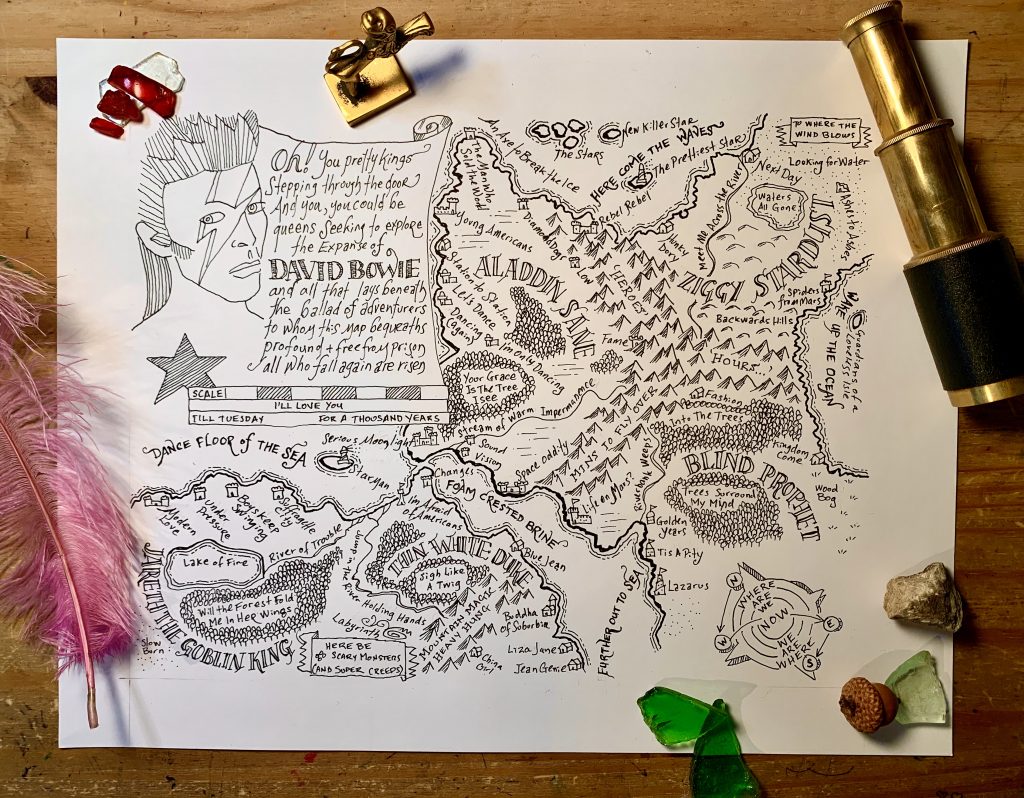 OH! You pretty kings
Stepping through the door
And you, you could be
queens Seeking to explore
the Expanse of
DAVID BOWIE
and all that lays beneath
the ballad of adventurers
to whom this map bequeaths
profound + free from prison
all who fall again are risen
SCALE
I'LL LOVE YOU
TILL TUESDAY FOR A THOUSAND YEARS
The Man Who Sold the World
An Axe to Break the Ice
The Stars
New Killer Star
HERE COME THE WAVES
The Prettiest Star
Rebel Rebel
TO WHERE THE
WIND BLOWS
Looking for Water
Next Day
Waters
All Gone
Ashes to Ashes
Meet Me Across the River
ZIGGY STARDUST
Spiders
from Mars
WAKE UP THE OCEAN
Guardians of a
Loveless Isle
Backwards Hills
Young Americans
ALADDIN SANE
Station to Station
Let's Dance
Dancing
Uncaring Dancing
Low
HEROES
Hunky
Dory
Fame
HOURS...
Your Grace
Is The Tree
I see
Stream of Warm Impermanence
Fashion
Into The Trees
Kingdom
Come
BLIND PROPHET
Trees Surround
My Mind
Wood
Bog
Riverbank Keeps
Golden
Years
Tis A Pity
Lazarus
Life on Mars?
Space Oddity
Sound
Vision
Serious Moonlight
Starman
DANCE FLOOR OF THE SEA
Changes
FOAM CRESTED BRINE
I'm Afraid
of Americans
Modern
Love
Under
Pressure
Boys Keep
Swinging
Suffragette
City
Lake of Fire
River of Trouble
Will the Forest Fold
Me In Her Wings
JARETH THE GOBLIN KING
Slow
Burn
THIN WHITE DUKE
Sigh Like
A Twig
Blue Jean
Labyrinth
HERE BE
SCARY MONSTERS
(AND SUPER CREEPS)
MOUNTAIN MAGIC
HEAVY HUNG
China
Girl
Buddha
of Suburbia
Liza Jane
Jean Genie
FURTHER OUT TO SEA
N
W
E
S
WHERE
ARE
WE
NOW
WE
ARE
WHERE